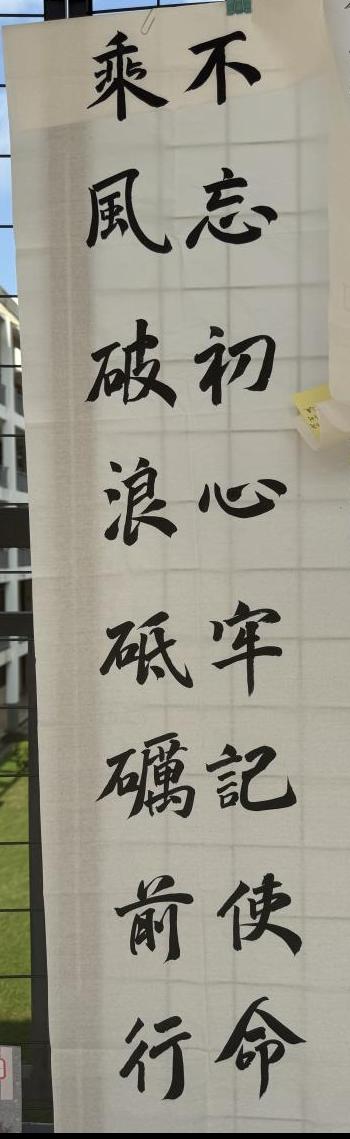 不忘初心牢記使命
乘風破浪砥礪前行